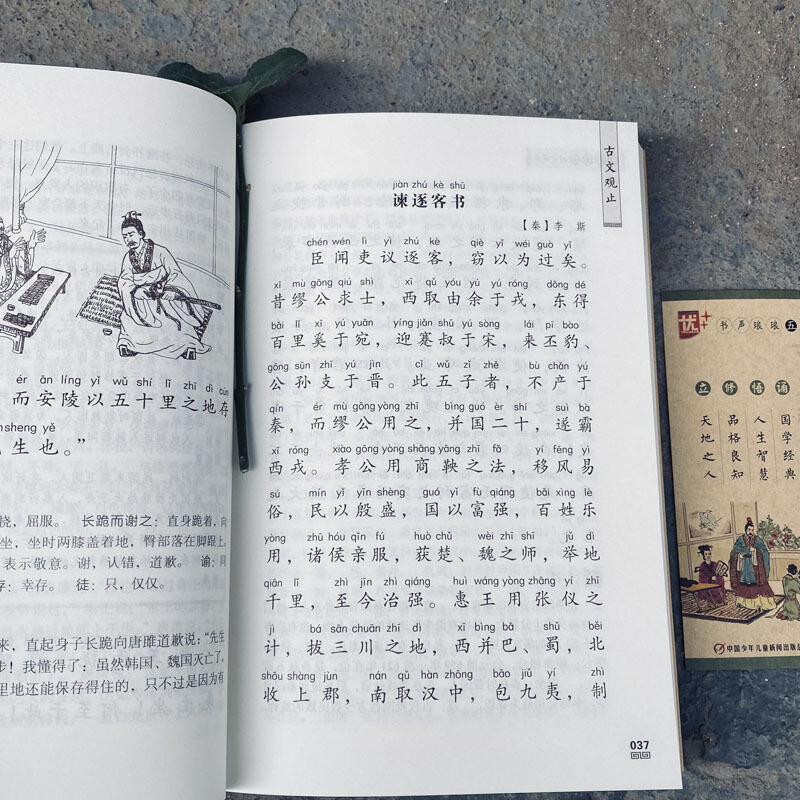 ér ān líng yǐ wǔ shí lǐ zhī dì cún
而安陵以五十里之地存
sheng yě
生也。”
挠，屈服。 长跪而谢之：直身跪着，向
坐，坐时两膝盖着地，臀部落在脚跟上。
表示敬意。谢，认错，道歉。 谕：同
存：幸存。 徒：只，仅仅。
来，直起身子长跪向唐雎道歉说：“先生
步！我懂得了：虽然韩国、魏国灭亡了，
里地还能保存得住的，只不过是因为有
古文观止
jiàn zhú kè shū
谏逐客书
【秦】李 斯
chén wén lì yì zhú kè qiè yǐ wéi guò yǐ
臣闻吏议逐客，窃以为过矣。
xī mù gōng qiú shì xī qǔ yóu yú yú róng dōng dé
昔缪公求士，西取由余于戎，东得
bǎi lǐ xī yú yuān yíng jiǎn shū yú sòng lái pī bào
百里奚于宛，迎蹇叔于宋，来丕豹、
gōng sūn zhī yú jìn cǐ wǔ zǐ zhě bù chǎn yú
公孙支于晋。此五子者，不产于
qín ér mù gōng yòng zhī bìng guó èr shí suì bà
秦，而缪公用之，并国二十，遂霸
xī róng xiào gōng yòng shāng yāng zhī fǎ yí fēng yì
西戎。孝公用商鞅之法，移风易
sú mín yǐ yīn shèng guó yǐ fù qiáng bǎi xìng lè
俗，民以殷盛，国以富强，百姓乐
yòng zhū hóu qīn fú huò chǔ wèi zhī shī jǔ dì
用，诸侯亲服，获楚、魏之师，举地
qiān lǐ zhì jīn zhì qiáng huì wáng yòng zhāng yí zhī
千里，至今治强。惠王用张仪之
jì bá sān chuān zhī dì xī bìng bā shǔ běi
计，拔三川之地，西并巴、蜀，北
shōu shàng jùn nán qǔ hàn zhōng bāo jiǔ yí zhì
收上郡，南取汉中，包九夷，制
037
优++
书声琅琅 五
立 修 悟 诵
天地之人
品格良知
人生智慧
国学经典
中国少年儿童新闻出版总